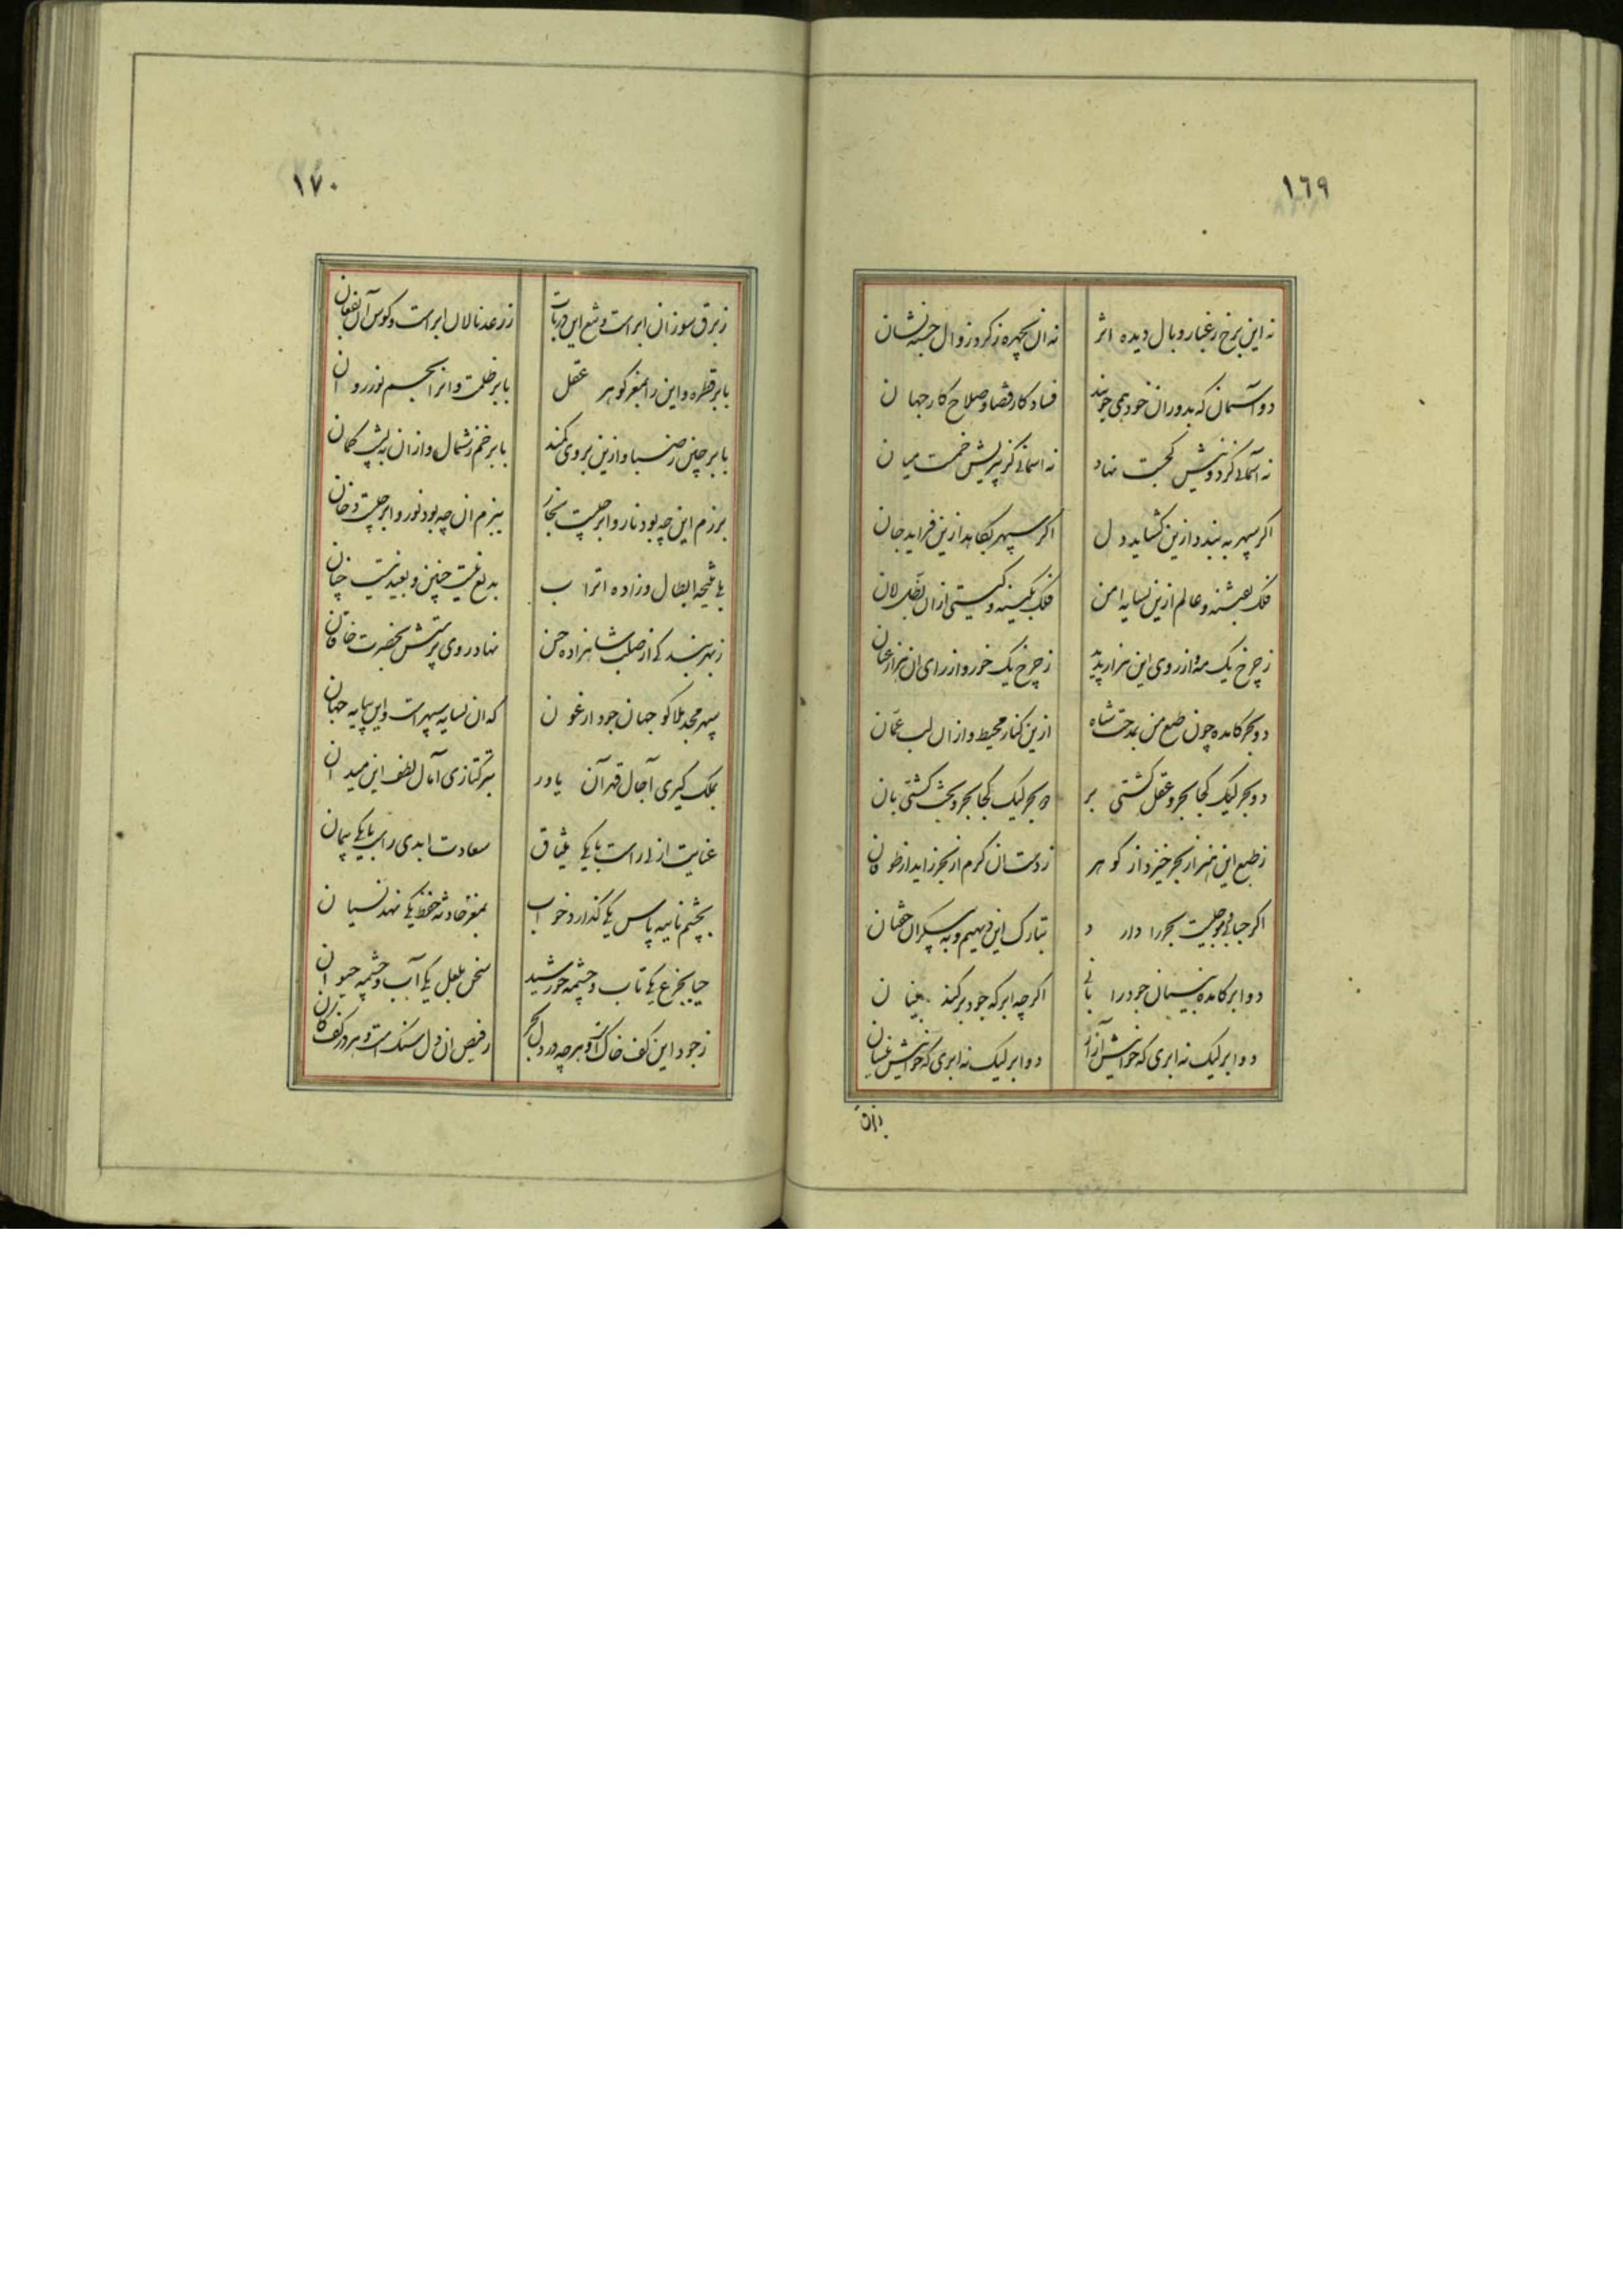 ١٦٩
نه این برخ ز غبار وبال دیده اثر نه ان بچهره ز کرد زوال جسته نشان
دو آسمان که بدوران خود همی جویند فساد کار قضا و صلاح کار جهان
نه آسمانی کز دونیش کجست نهاد نه اسمانی کز پیریش خمست میان
اکر سپهر به بندد ازین کشاید دل اکر سپهر بکاهد ازین فزاید جان
فلک بفتنه و عالم ازین بسایه امن فلک بکینه و کیتی ازان بظل امان
ز چرخ یک مه و از روی این هزار پدید ز چرخ یک خور و از رای ان هزار عیان
دو بحر کامده چون طبع من بمدحت شاه ازین کنار محیط و ازان لب عمان
دو بحر لیک کجا بحر و عقل کشتی بر دو بحر لیک کجا بحر و بخت کشتی بان
ز طبع این هنر از بحر خیزد از کوهر ز دست ان کرم از بحر زاید از طوفان
اکر حبابی و موجیست بحر را دارد بتارک این دیهیم و به پیکر ان خفتان
دو ابر کامده نیسان جود را بانی اکرچه ابر که جود بر کند بنیان
دو ابر لیک نه ابری که خوانیش آزار دو ابر لیک نه ابری که خوانیش نیسان
زبرق
١٧٠
ز برق سوزان ابر است و تیغ این ز رعد نالان ابر است و کوس آن بفغان
بابر قطره و این را بمغز کوهر عقل بابر ظلمت و انرا بجسم نور روان
بابر چین ز صبا و ازین بروی کمند بابر خم ز شمال و ازان به پشت کمان
برزم این چه بود نار و ابر چیست بخار ببزم ان چه بود نور و ابر چیست دخان
بدیع نیست چنین و بعید نیست چنان
نهاد روی پرستش بحضرت خاقان
سپهر مجد هلاکو جهان جود ارغون که ان بسایه سپهر است و این بپایه جهان
بملک کیری آجال قهر آن یاور بترکتازی آمال لطف این میدان
عنایت ازلی راست با یکی میثاق سعادت ابدی راست با یکی پیمان
بچشم نایبه پاس یکی کذارد خواب بمغز حادثه حفظ یکی نهد نسیان
حیا بجزع یکی تاب و چشمه خورشید سخن بلعل یکی آب و چشمه حیوان
ز جود این کف خاک است و هرچه در دل بحر ز فیض ان دل سنک است و هرچه در کف کان